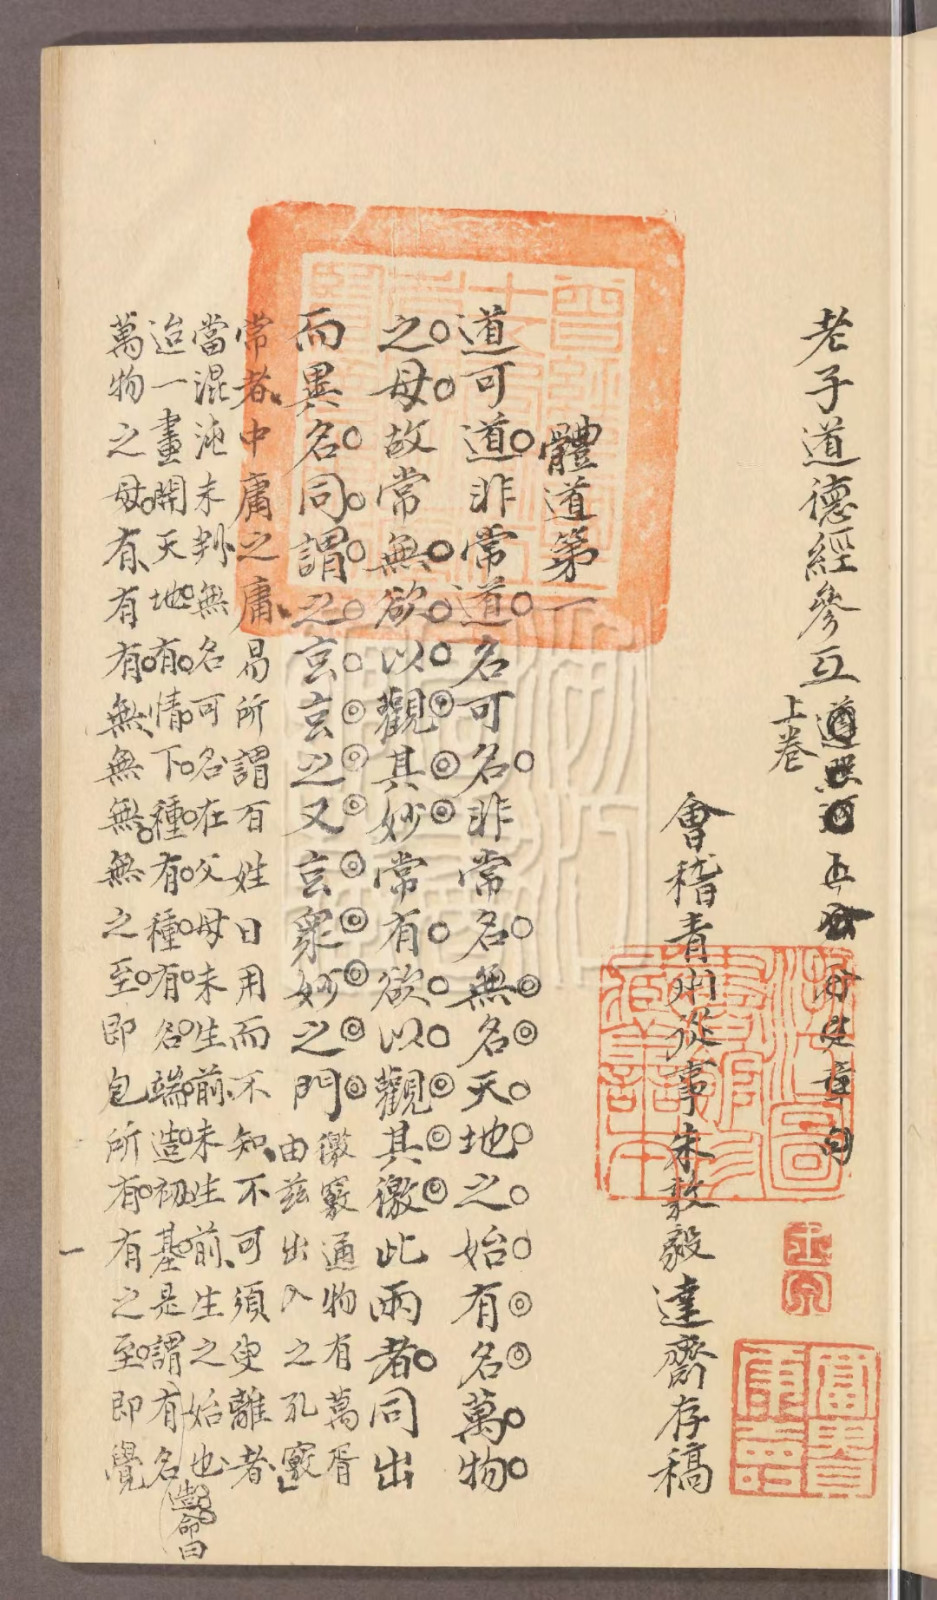 老子道德經參互
上卷
分定章句
會稽青州從事朱敦毅達齋存稿
體道第一
道可道非常道名可名非常名無名天地之始有名萬物
之母故常無欲以觀其妙常有欲以觀其徼此兩者同出
而異名同謂之玄玄之又玄衆妙之門
徼竅通物有萬胥
由茲出入之孔竅
常者中庸之庸易所謂百姓日用而不知不可須臾離者
當混沌未判無名可名在父母未生前未生前生之始也
迨一畫開天地有情下種有種有名端造初基是謂有名
造命曰
萬物之母有有有無無無無之至即包所有有之至即覺
一
富貴